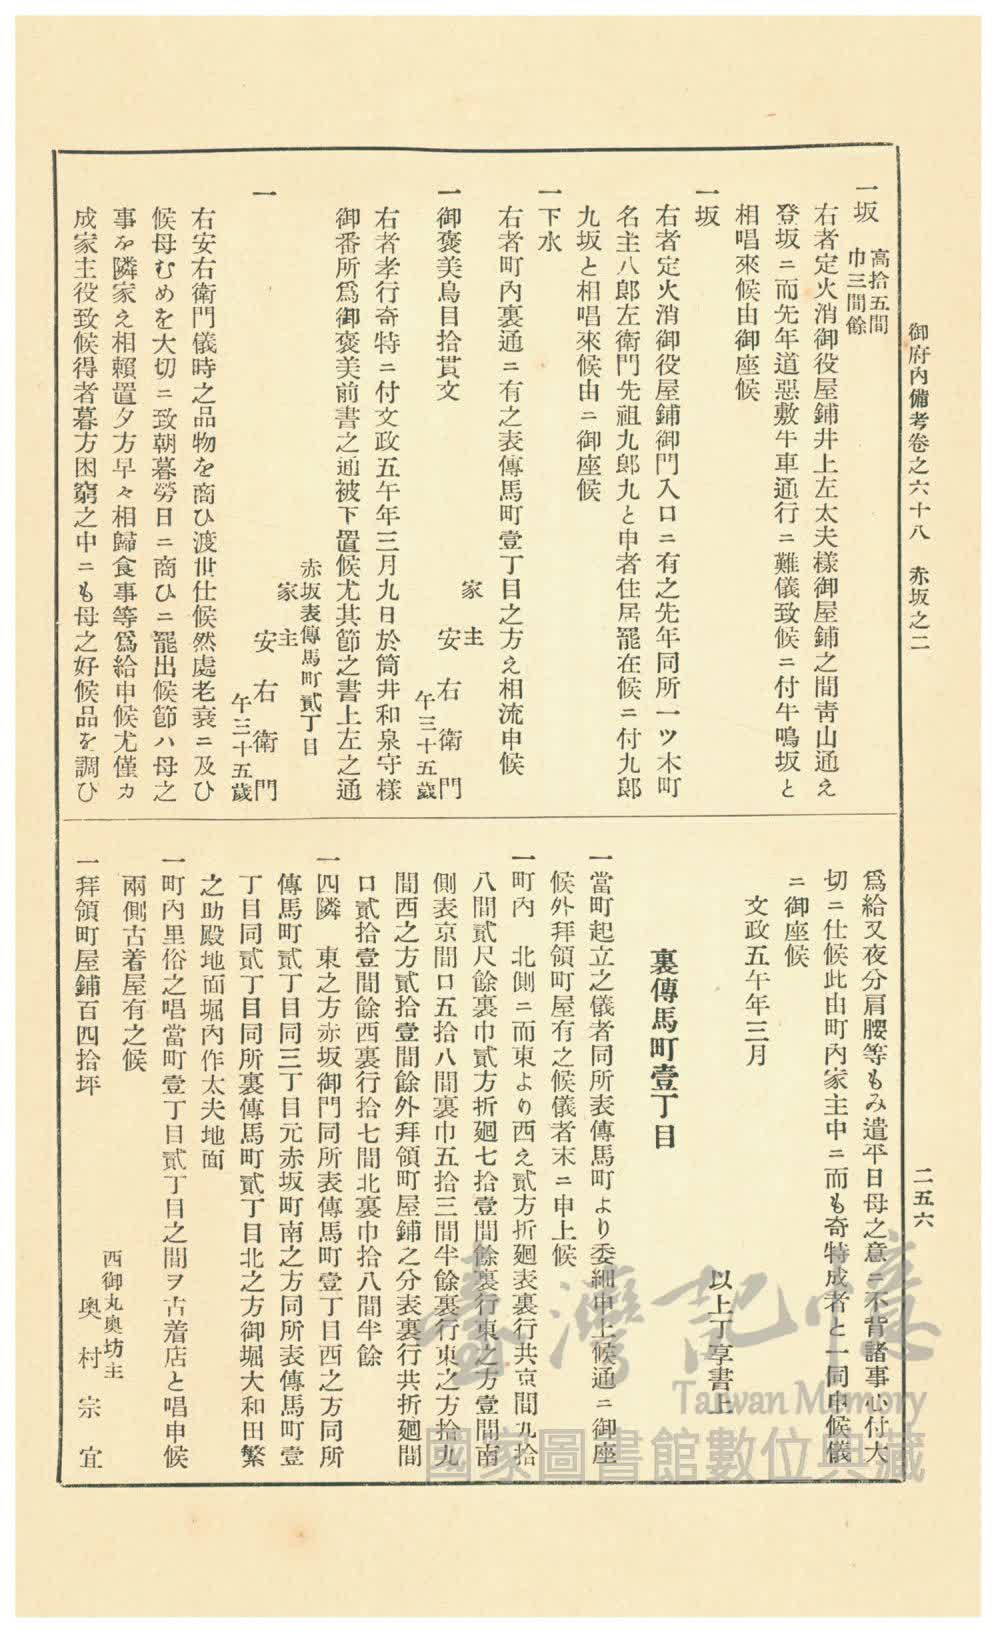 御府內備考卷之六十八　赤坂之二
二五六
一坂　高拾五間
巾三間餘
右者定火消御役屋鋪井上左太夫樣御屋鋪之間靑山通え
登坂ニ而先年道惡敷牛車通行ニ難儀致候ニ付牛鳴坂と
相唱來候由御座候
一坂
右者定火消御役屋鋪御門入口ニ有之先年同所一ツ木町
名主八郎左衛門先祖九郎九と申者住居罷在候ニ付九郎
九坂と相唱來候由ニ御座候
一下水
右者町內裏通ニ有之表傳馬町壹丁目之方え相流申候
一御褒美鳥目拾貫文
家主
安右衛門
午三十五歲
右者孝行奇特ニ付文政五午年三月九日於筒井和泉守樣
御番所爲御褒美前書之通被下置候尤其節之書上左之通
赤坂表傳馬町貳丁目
一
家主
安右衛門
午三十五歲
右安右衛門儀時之品物を商ひ渡世仕候然處老衰ニ及ひ
候母むめを大切ニ致朝暮勞日ニ商ひニ罷出候節ハ母之
事を隣家え相賴置夕方早々相歸食事等爲給申候尤僅カ
成家主役致候得者暮方困窮之中ニも母之好候品を調ひ
爲給又夜分肩腰等もみ遣平日母之意ニ不背諸事心付大
切ニ仕候此由町內家主中ニ而も奇特成者と一同申候儀
ニ御座候
文政五午年三月
以上丁亨書上
裏傳馬町壹丁目
一當町起立之儀者同所表傳馬町より委細申上候通ニ御座
候外拜領町屋有之候儀者末ニ申上候
一町內　北側ニ而東より西え貳方折廻表裏行共京間九拾
八間貳尺餘裏巾貳方折廻七拾壹間餘裏行東之方壹間南
側表京間口五拾八間裏巾五拾三間半餘裏行東之方拾九
間西之方貳拾壹間餘外拜領町屋鋪之分表裏行共折廻間
口貳拾壹間餘西裏行拾七間北裏巾拾八間半餘
一四隣　東之方赤坂御門同所表傳馬町壹丁目西之方同所
傳馬町貳丁目同三丁目元赤坂町南之方同所表傳馬町壹
丁目同貳丁目同所裏傳馬町貳丁目北之方御堀大和田繁
之助殿地面堀內作太夫地面
一町內里俗之唱當町壹丁目貳丁目之間ヲ古着店と唱申候
兩側古着屋有之候
一拜領町屋鋪百四拾坪
西御丸奥坊主
奥村宗宜
臺灣記憶
Taiwan Memory
國家圖書館數位典藏